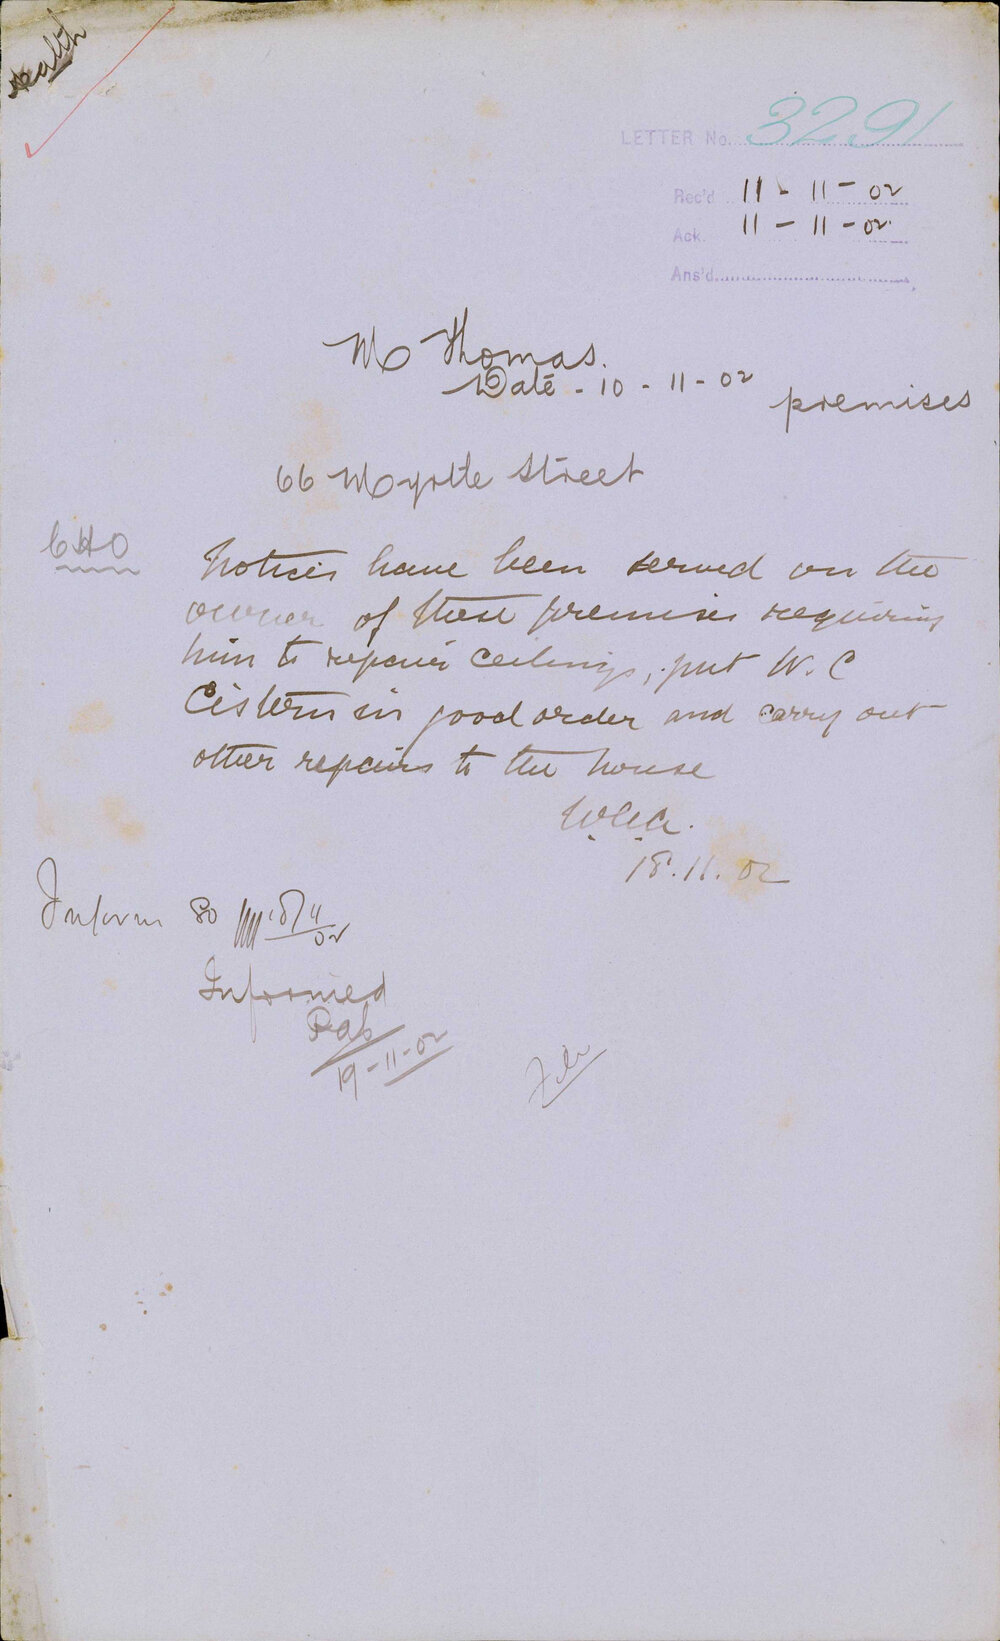 Health
LETTER No. 3291
Rec'd 11-11-02
Ack. 11-11-02.
Ans'd
M Thomas.
Date - 10-11-02
premises
66 Myrtle Street
CHO
Notices have been served on the
owner of these premises requiring
him to repair ceilings, put W.C
Cistern in good order and carry out
other repairs to the house
18.11.02
Inform so 18/11/02
Informed
19-11-02
File